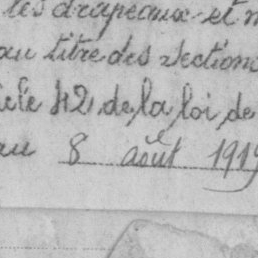 les drapeaux et m
au titre des sections
icle 42 de la loi de
au 8 août 1919